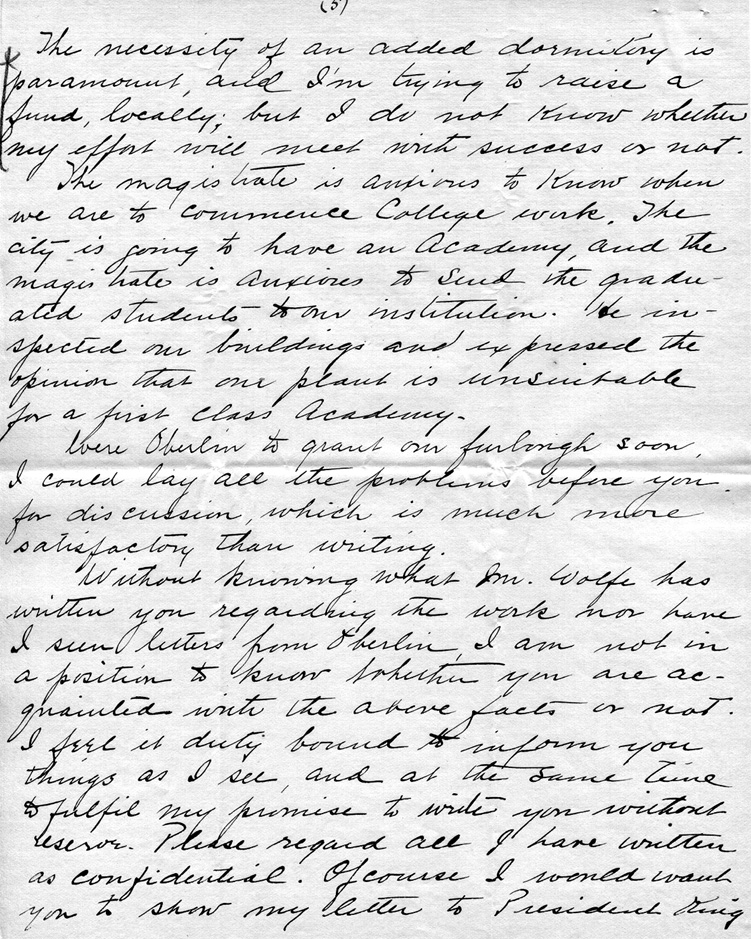 (5)
The necessity of an added dormitory is
paramount, and I'm trying to raise a
fund, locally; but I do not know whether
my effort will meet with success or not.
The magistrate is anxious to know when
we are to commence College work. The
city is going to have an Academy, and the
magistrate is anxious to send the gradu-
ated students to our institution. He in-
spected our buildings and expressed the
opinion that our plant is unsuitable
for a first class Academy.
Were Oberlin to grant our furlough soon,
I could lay all the problems before you
for discussion, which is much more
satisfactory than writing.
Without knowing what Mr. Wolfe has
written you regarding the work nor have
I seen letters from Oberlin, I am not in
a position to know whether you are ac-
quainted with the above facts or not.
I feel it duty bound to inform you
things as I see, and at the same time
to fulfil my promise to write you without
reserve. Please regard all I have written
as confidential. Of course I would want
you to show my letter to President King